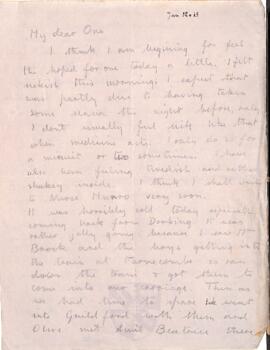 Jan 12
My dear One
I think I am begining for feel
the hoped for one today a little. I felt
sickish this morning; I expect that
was partly due to having taken
some senna the night before, only
I don't usually feel sick like that
when medicine acts. I only do so for
a minute or two sometimes. I have
also been feeling and rather
shakey inside. I think I shall write
to Morse Munro very soon.
It was horribly cold today especially
coming back from Dorking. It was
rather jolly going because I saw Mr
and the boys getting into
the train at so ran
down the train & got them to
come into our carriage. Then as
we had time to spare we went
into Guildford with them and
Olive met Beatrice there